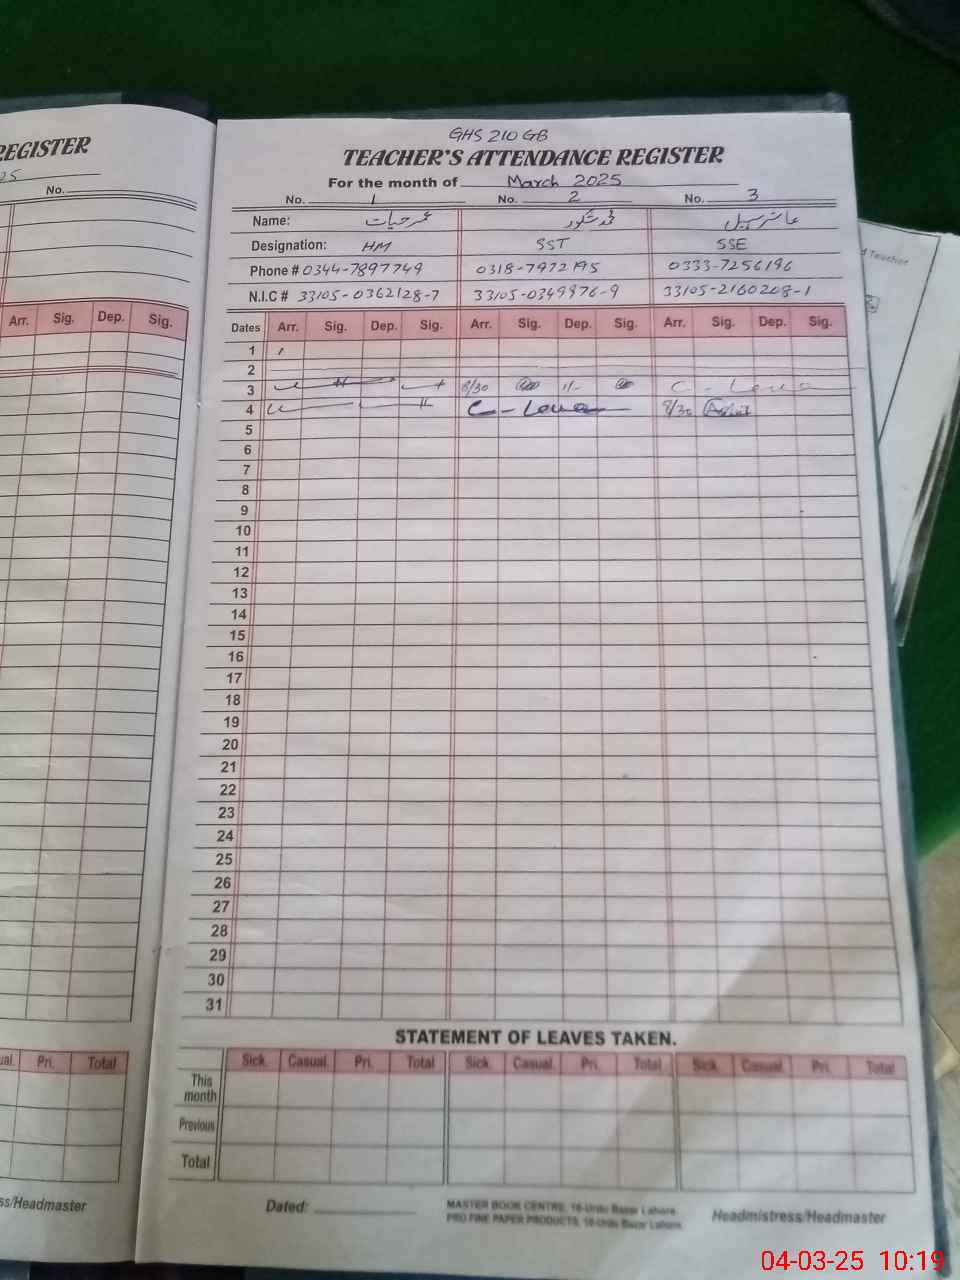 REGISTER
25
No.
Arr. Sig. Dep. Sig.
Pri. Total
ss/Headmaster
GHS 210 GB
TEACHER'S ATTENDANCE REGISTER
For the month of March 2025
No. 1 No. 2 No. 3
Name: عمر حیات
Designation: HM SST SSE
Phone # 0344-7897749 0318-7972195 0333-7256196
N.I.C # 33105-0362128-7 33105-0349976-9 33105-2160208-1
Dates Arr. Sig. Dep. Sig. Arr. Sig. Dep. Sig. Arr. Sig. Dep. Sig.
1
2
3 8/30 C - Leave
4 C - Leave 8/30
5
6
7
8
9
10
11
12
13
14
15
16
17
18
19
20
21
22
23
24
25
26
27
28
29
30
31
STATEMENT OF LEAVES TAKEN.
Sick. Casual. Pri. Total Sick. Casual. Pri. Total Sick. Casual. Pri. Total
This month
Previous
Total
Dated:
MASTER BOOK CENTRE, 16-Urdu Bazar Lahore.
PRO FINE PAPER PRODUCTS, 16-Urdu Bazar Lahore.
Headmistress/Headmaster
04-03-25 10:19